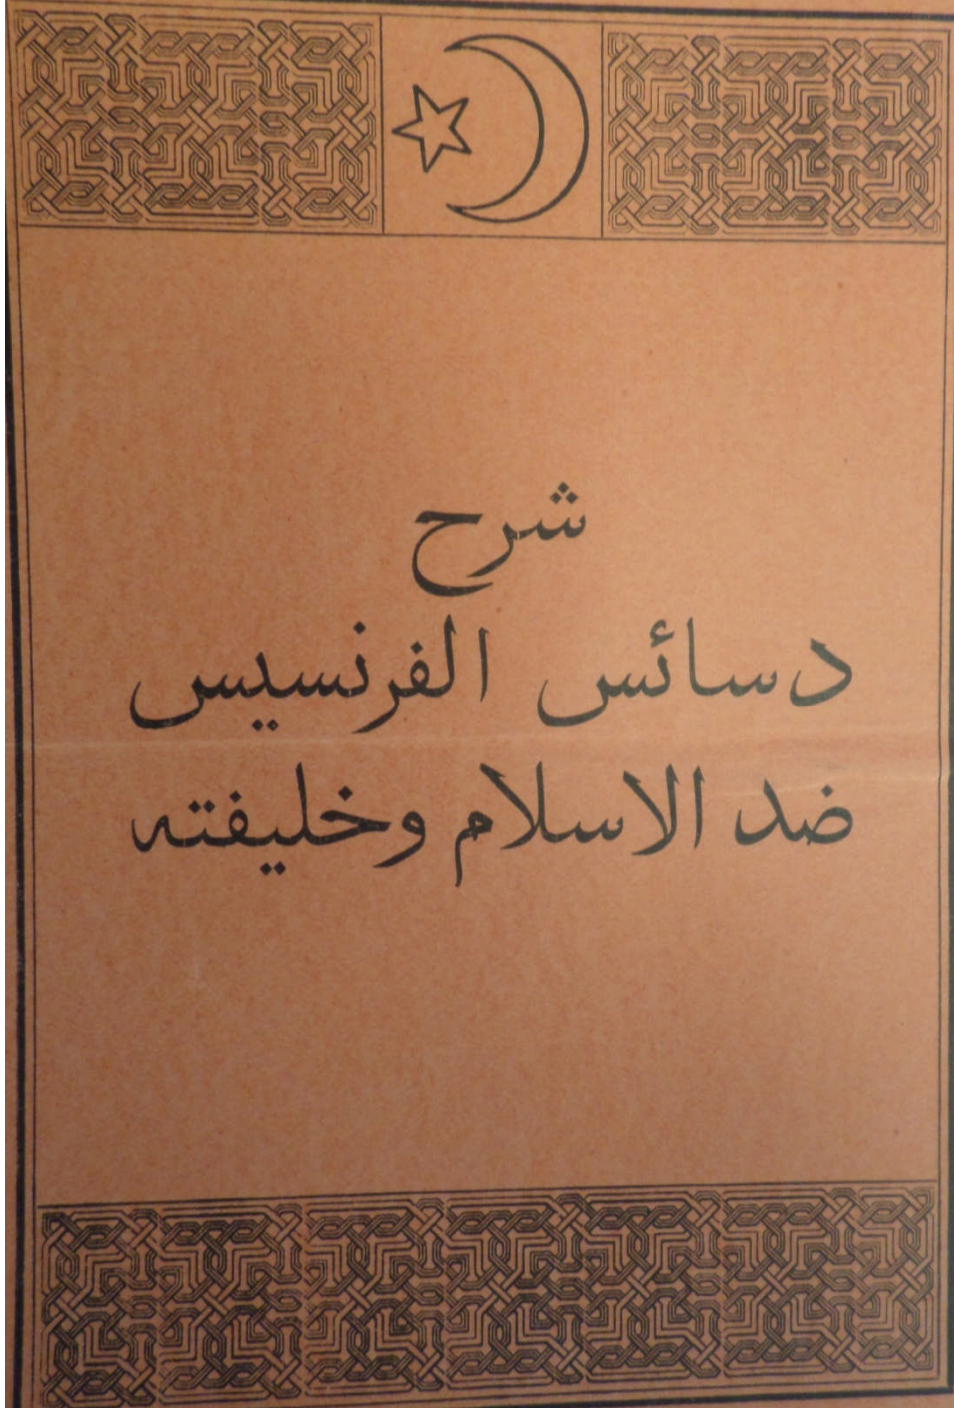 شرح
دسائس الفرنسيس
ضد الاسلام وخليفته